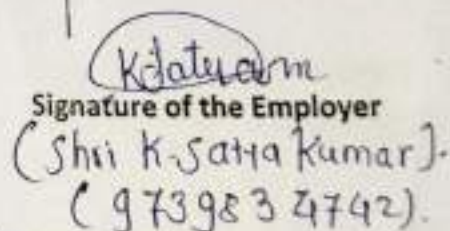 Signature of the Employer
(Shri K. Satya Kumar).
(9739834742).